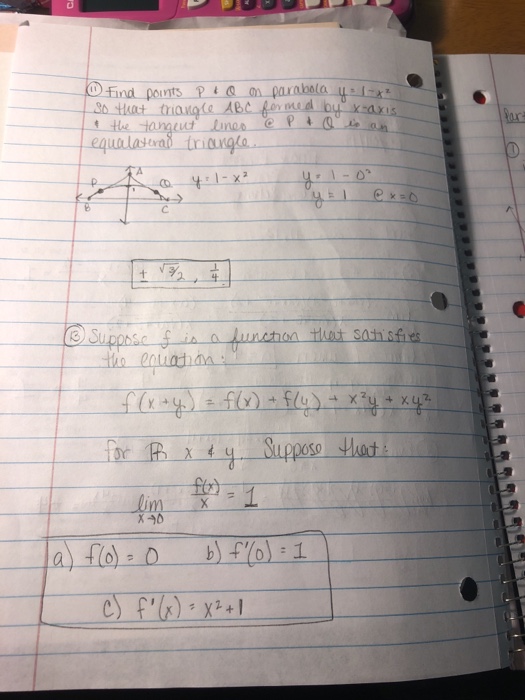 ⑪ Find points P & Q on parabola y = 1-x²
so that triangle ABC formed by x-axis
& the tangent lines @ P & Q is an
equalateral triangle.
A
P Q y = 1-x² y = 1-0²
1 y = 1 @ x=0
B C
± √3/2 , 1/4
⑬ Suppose f is a function that satisfies
the equation:
f(x+y) = f(x) + f(y) + x²y + xy²
for x & y. Suppose that:
lim f(x)/x = 1
x→0
a) f(0) = 0 b) f'(0) = 1
c) f'(x) = x²+1
①